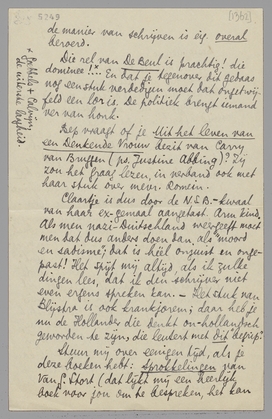 S245
(1362)
de manier van schrijven is eig. overal
beroerd.
Die rel van De Beul is prachtig! die
dominee!!! En dat je tegenover dit gebaas
nog een stuk verdedigen moet dat ongetwij-
feld een lor is. De politiek brengt iemand
ver van honk.
Bep vraagt of je Uit het leven van
een Denkende Vrouw bezit van Carry
van Bruggen (ps. Justine Abbing)? Zij
zou het graag lezen, in verband ook met
haar stuk over mevr. Romein.
Claartje is dus door de N.S.B.-kwaal
van haar ex-gemaal aangetast. Arm kind.
Als men nazi-Duitschland weergeeft moet
men dat dus anders doen dan als "moord
en sadisme"; dat is heel onjuist en onge-
past! Het spijt mij altijd, als ik zulke
dingen lees, dat ik den schrijver niet
even ergens spreken kan. – Het stuk van
Blijstra is ook krankjorem; daar heb je
nu de Hollander die denkt on-hollandsch
geworden te zijn, die leutert met
Stuur mij over eenigen tijd, als je
deze boeken hebt: Sprokkelingen van
Van 's. Stort (dat lijkt mij een heerlijk
boek voor jou om te bespreken, het kan
x Cathilo + Calvijn,
de uiterste laagheid.